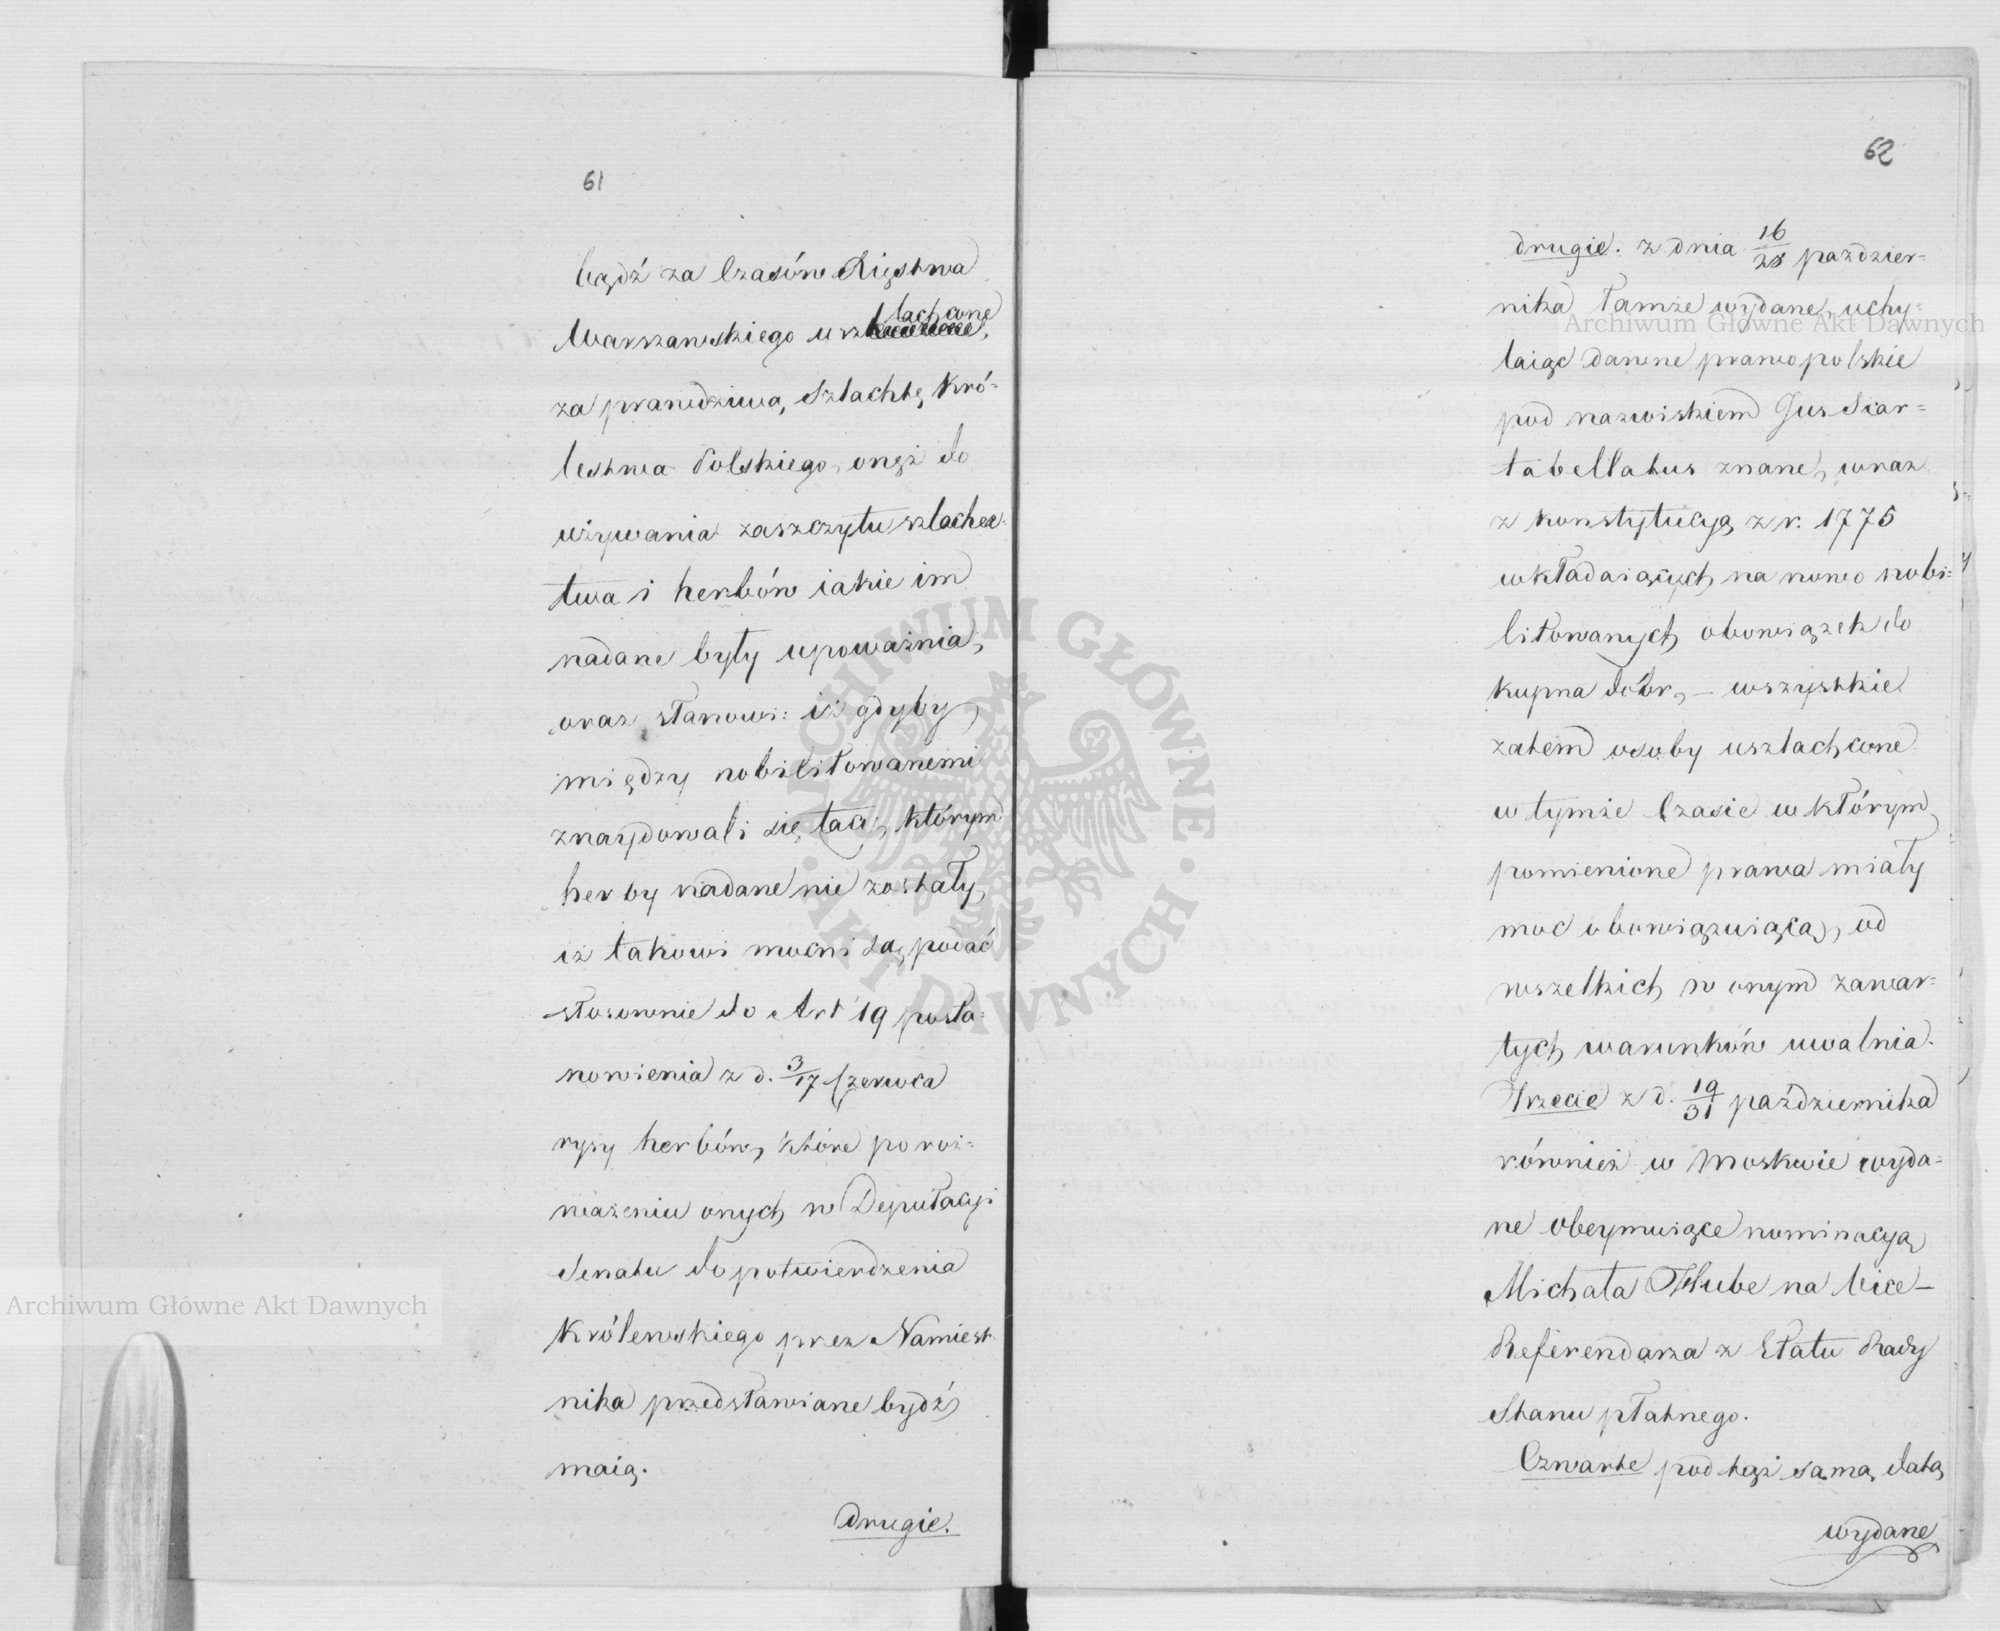 61
bądź za Czasów Xięstwa
Warszawskiego uszlachcone,
za prawdziwą Szlachtę Kró-
lestwa Polskiego, onęż do
używania zaszczytu szlachec-
twa i herbów iakie im
nadane były upoważnia,
oraz stanowi: iż gdyby
między nobilitowanemi
znaydowali się tacy, którym
herby nadane nie zostały,
iż takowi mocni są podać
stosownie do Art 19 posta-
nowienia z d. 3/17 Czerwca
rysy herbów, które po roz-
ważeniu onych w Deputacyi
Senatu do potwierdzenia
Królewskiego przez Namiest-
nika przedstawiane bydź
maią.
Drugie.
62
drugie: z dnia 16/28 paździer-
nika tamże wydane, uchy-
laiąc dawne prawo polskie
pod nazwiskiem Jus Scar-
tabellatus znane, wraz
z Konstytucyą z r. 1775
wkładaiących na nowo nobi-
litowanych obowiązek do
kupna dóbr, – wszystkie
zatem osoby uszlachcone
w tymże Czasie w którym
pomienione prawa miały
moc obowiązuiącą, od
wszelkich w onym zawar-
tych warunków uwalnia.
Trzecie z d. 19/31 października
również w Moskwie wyda-
ne obeymuiące nominacyą
Michała Hube na Vice-
Referendarza z Etatu Rady
Stanu płatnego.
Czwarte pod tąż samą datą
wydane
Archiwum Główne Akt Dawnych
Archiwum Główne Akt Dawnych
ARCHIWUM GŁÓWNE · AKT DAWNYCH ·